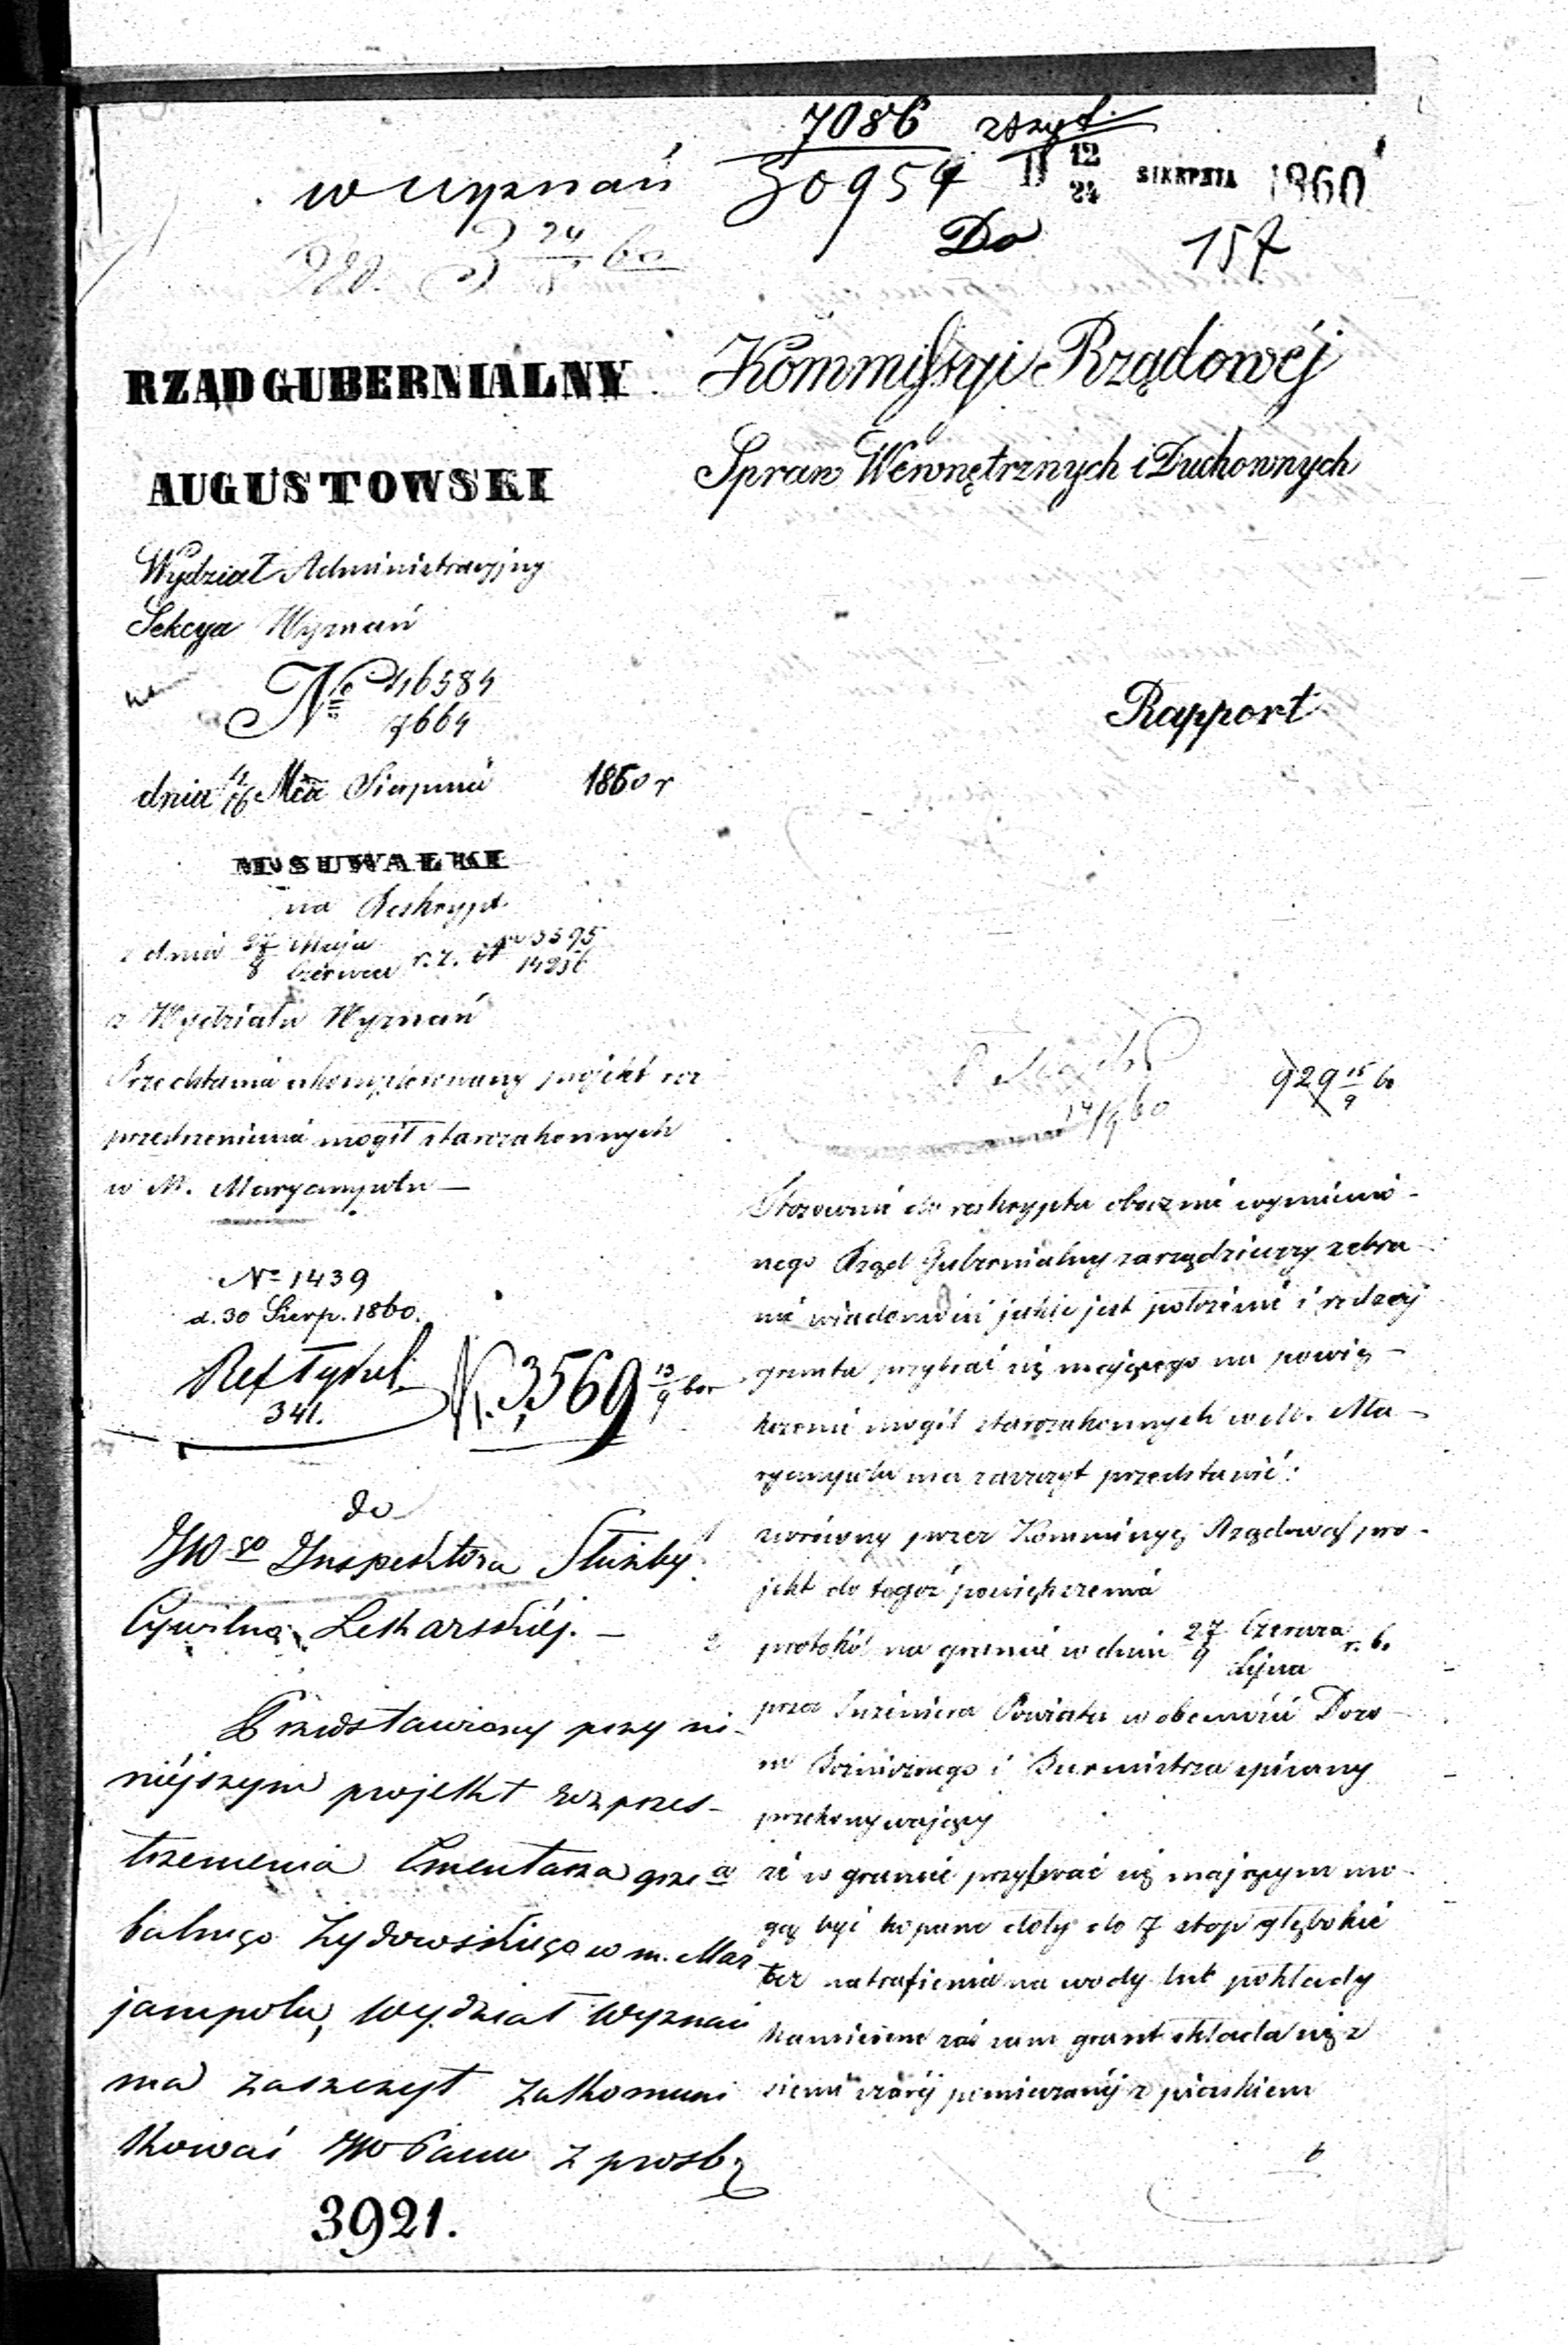 7086 zszyt.
w wyznań 30954 D 12/24 SIERPNIA 1860
24/8 60
Do 157
RZĄD GUBERNIALNY
AUGUSTOWSKI
Wydział Administracyjny
Sekcya Wyznań
No 46584
7664
dnia 4/16 Mca Sierpnia 1860 r
M. SUWAŁKI
na Reskrypt
z dnia 27 Maja
8 Czerwca r. z. No 3595
14256
z Wydziału Wyznań
Przedstawia ukompletowany projekt roz
przestrzenienia mogił starozakonnych
w M. Maryampolu —
No 1439
d. 30 Sierp. 1860.
Ref Tykel
341.
N. 3569 13/9 60r
do
JWgo Inspektora Służby
Cywilno Lekarskiéj. —
Przedstawiony przy ni-
niéjszym projekt rozprzes-
trzenienia Cmentarza grze
balnego Żydowskiego w m. Mar
jampolu, Wydział Wyznań
ma zaszczyt zakomuni
kować JW Panu z prośbą
3921.
Kommissyi Rządowéj
Spraw Wewnętrznych i Duchownych
Rapport
14/9 60
929 15/9 60
Stosownie do reskryptu obocznie wymienio-
nego Rząd Gubernialny zarządziwszy zebra
nie wiadomości jakie jest położenie i rodzaj
gruntu przybrać się mającego na powię-
kszenie mogił starozakonnych w M. Ma-
ryampolu ma zaszczyt przedstawić:
1 zwrócony przez Kommissyę Rządową pro-
jekt do tegoż powiększenia
2 protokół na gruncie w dniu 27 Czerwca
9 Lipca r. b.
przez Inżeniera Powiatu w obecności Dozo-
ru Bożniczego i Burmistrza spisany
przekonywający
że w gruncie przybrać się mającym mo-
gą być kopane doły do 7 stop głębokie
bez natrafienia na wody lub pokłady
kamienne zaś sam grunt składa się z
ziemi szaréj pomieszanéj z piaskiem